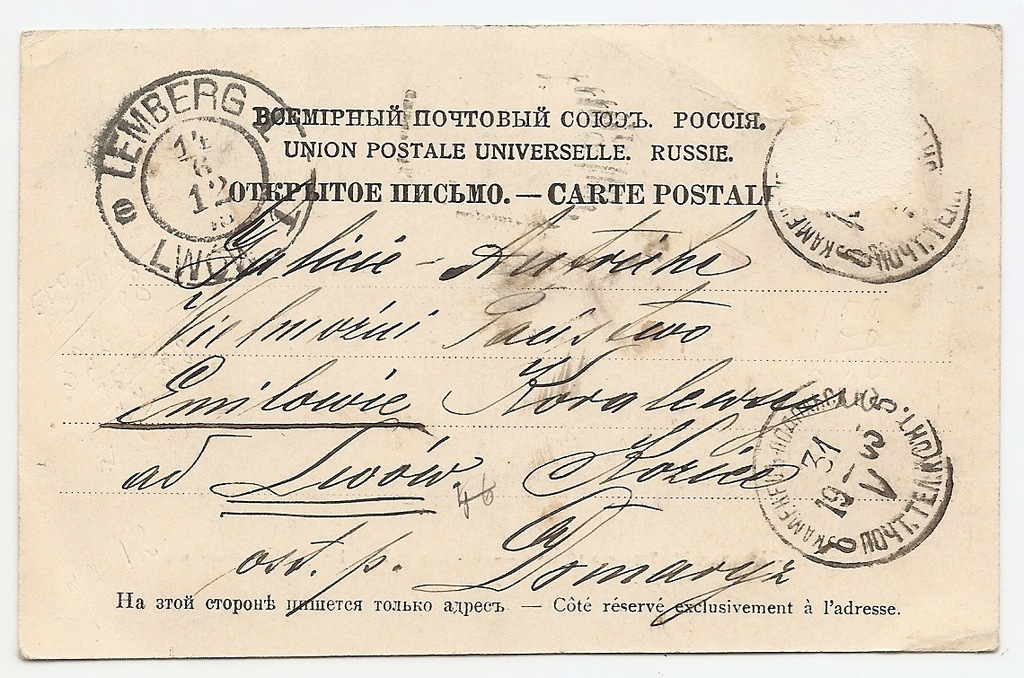 LEMBERG 1
14
6
12
LWÓW 1
ВСЕМІРНЫЙ ПОЧТОВЫЙ СОЮЗЪ. РОССІЯ.
UNION POSTALE UNIVERSELLE. RUSSIE.
ОТКРЫТОЕ ПИСЬМО. — CARTE POSTALE
Galicie - Autriche
Wielmożni Państwo
Emilowie
ad Lwów
ost. p.
31
V
19
ПОЧТ. ТЕЛ. КОНТ.
46
На этой сторонѣ пишется только адресъ. — Côté réservé exclusivement à l'adresse.